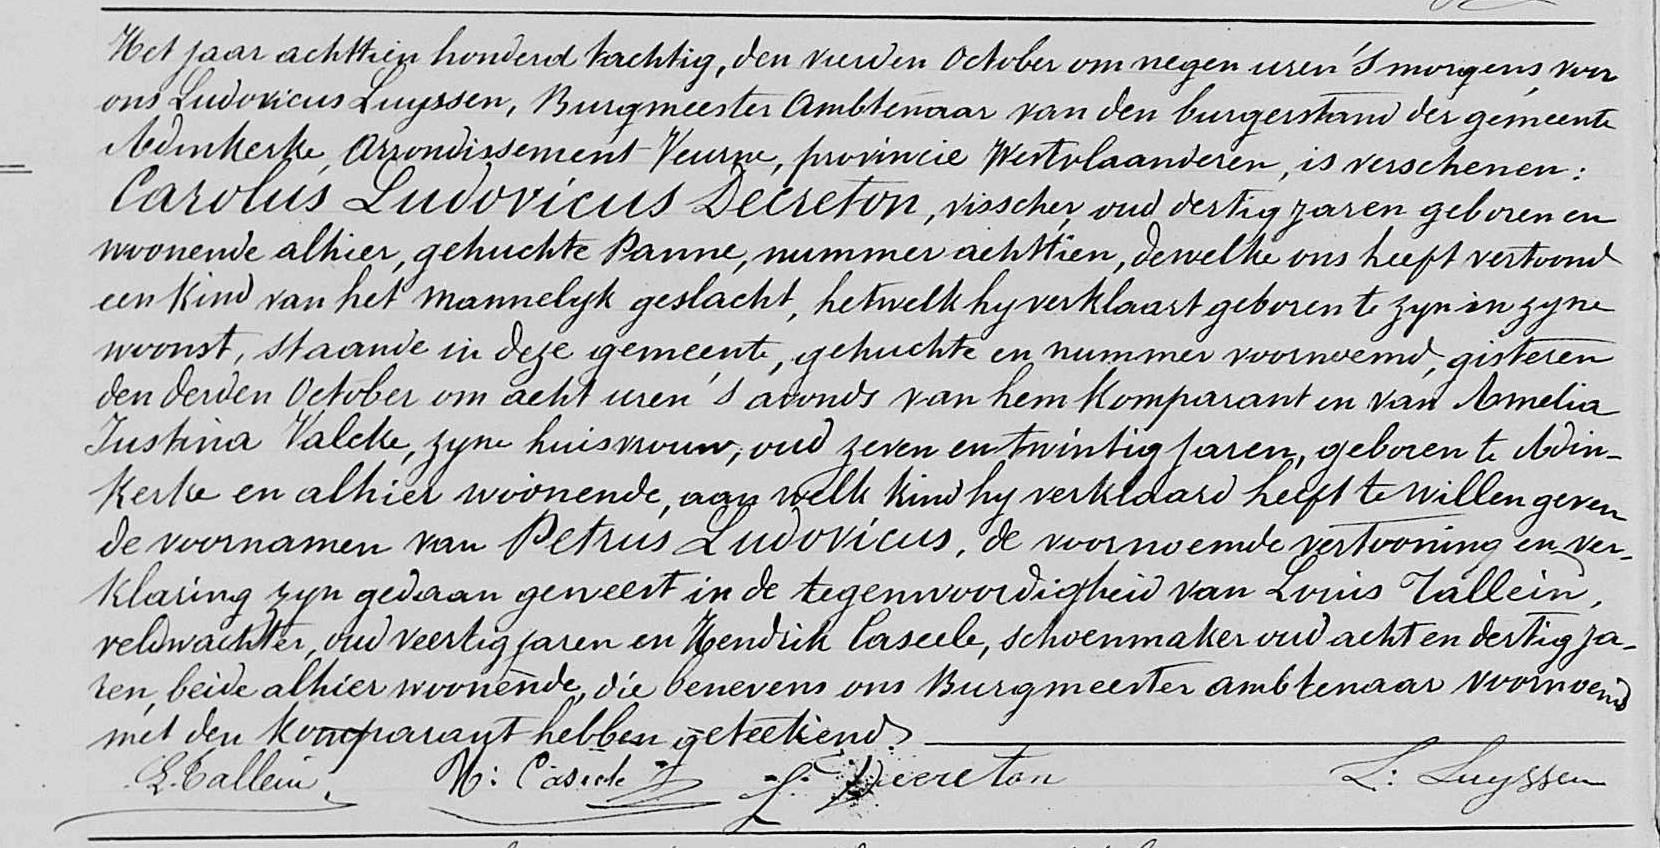 Het jaar achttien honderd tachtig, den vierden October om negen uren 's morgens, voor
ons Ludovicus Luyssen, Burgmeester Ambtenaar van den burgerstand der gemeente
Adinkerke, Arrondissement Veurne, provincie Westvlaanderen, is verschenen:
Carolus Ludovicus Decreton, visscher, oud dertig jaren geboren en
woonende alhier, gehuchte Panne, nummer achttien, dewelke ons heeft vertoond
een kind van het mannelyk geslacht, hetwelk hy verklaart geboren te zyn in zyne
woonst, staande in deze gemeente, gehuchte en nummer voornoemd, gisteren
den derden October om acht uren 's avonds van hem Komparant en van Amelia
Justina Valcke, zyne huisvrouw, oud zeven en twintig jaren, geboren te Adin-
kerke en alhier woonende, aan welk kind hy verklaard heeft te willen geven
de voornamen van Petrus Ludovicus, de voornoemde vertooning en ver-
klaring zyn gedaan geweest in de tegenwoordigheid van Louis Tallein,
veldwachter, oud veertig jaren en Hendrik Caseele, schoenmaker oud acht en dertig ja-
ren, beide alhier woonende, die benevens ons Burgmeester ambtenaar voornoemd
met den komparant hebben geteekend.
L. Tallein H: Caseele L. Decreton L: Luyssen